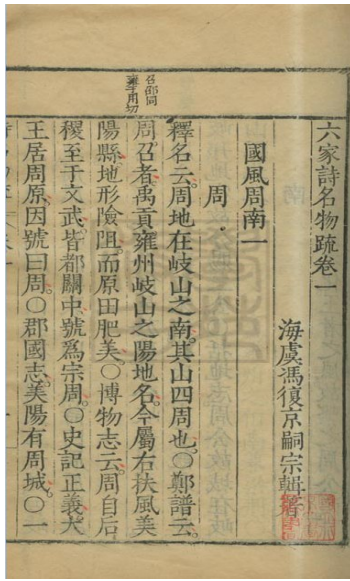 六家詩名物疏卷一
海虞馮復京嗣宗輯著
國風周南一
周
釋名云周地在岐山之南其山四周也○鄭譜云
周召者禹貢雍州岐山之陽地名今屬右扶風美
陽縣地形險阻而原田肥美○博物志云周自后
稷至于文武皆都關中號爲宗周○史記正義太
王居周原因號曰周○郡國志美陽有周城○一
召邵同
雍用切